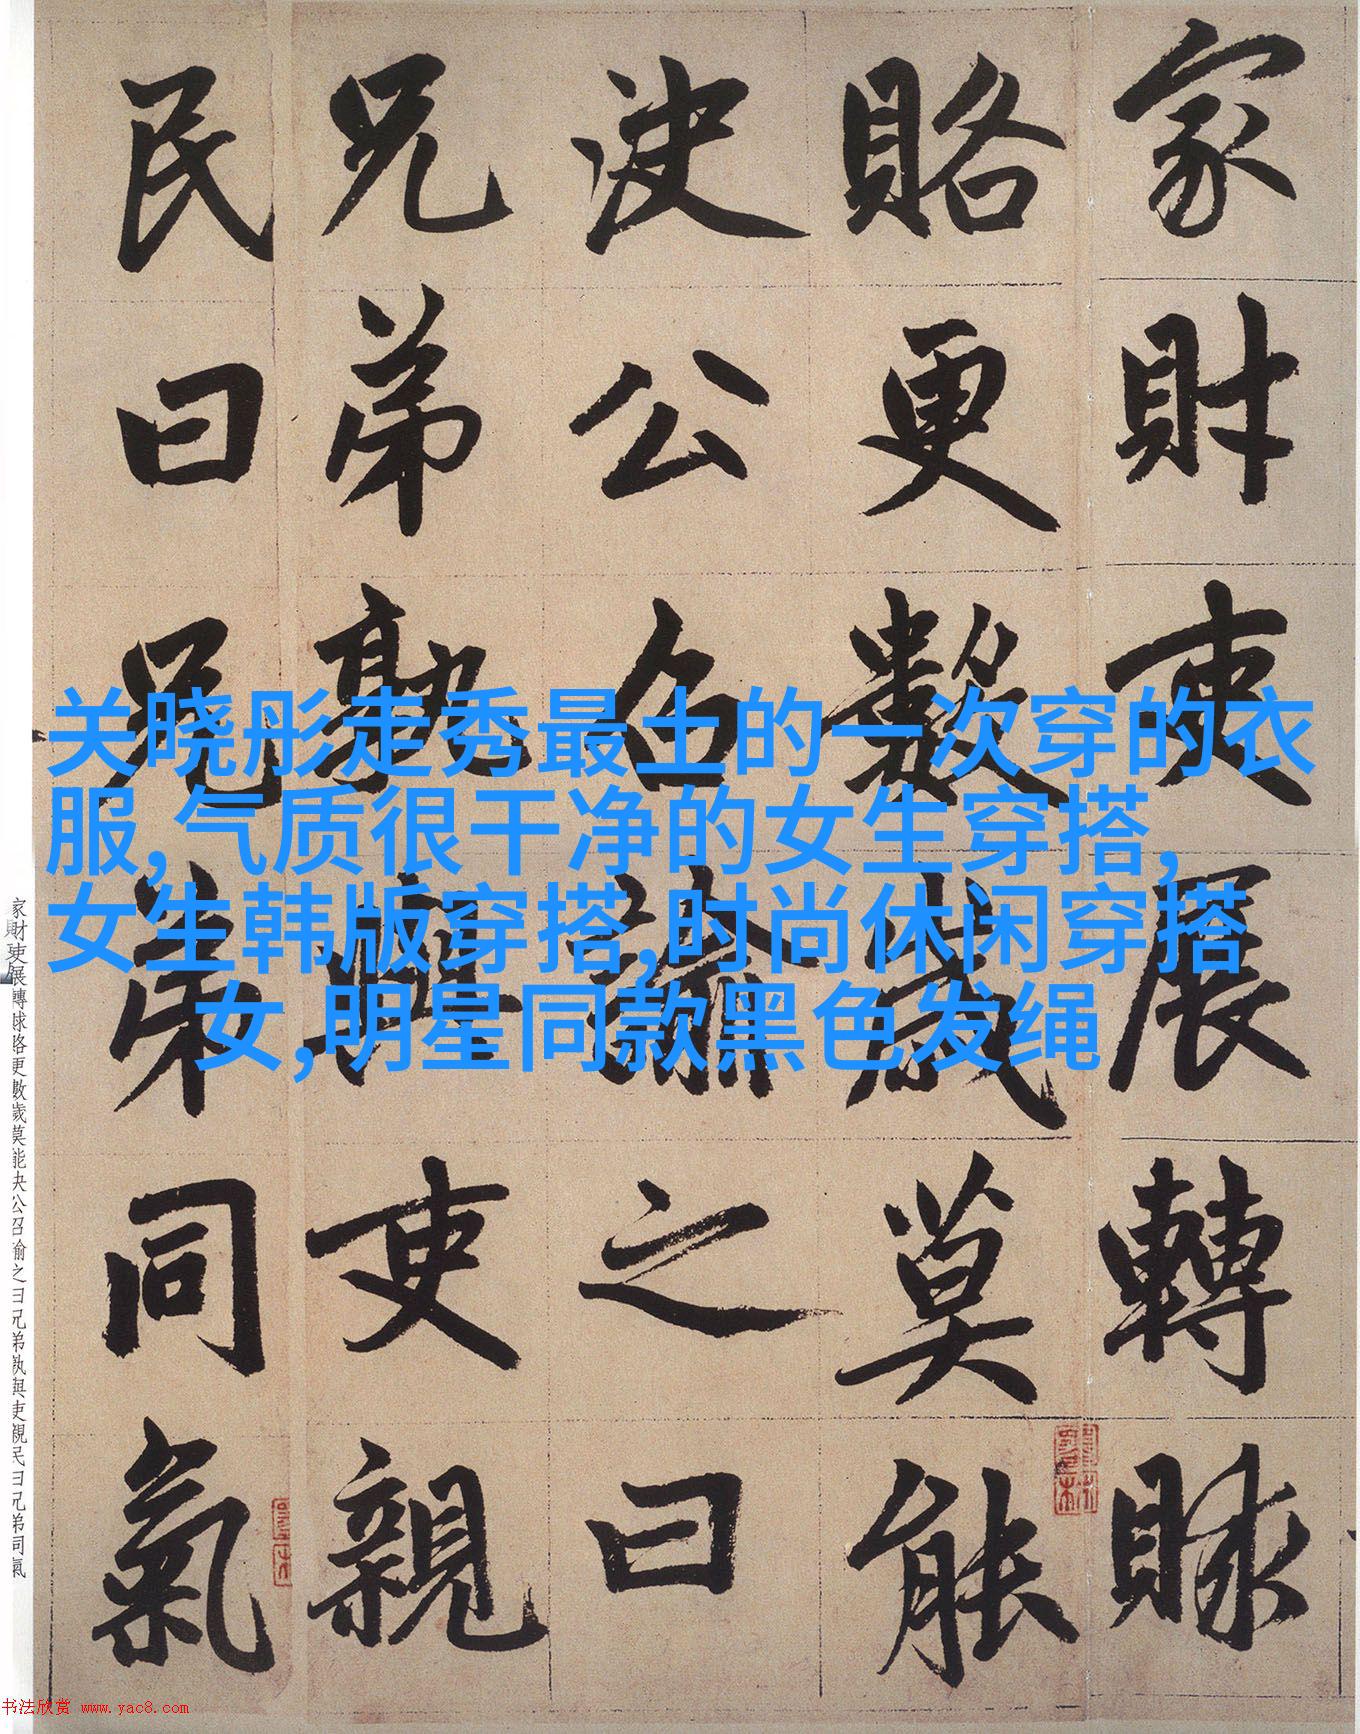 家財吏展轉賕
賂更數歲莫能
決公召諭之曰
兄弟孰與吏親
民曰兄弟同氣
关晓彤走秀最土的一次穿的衣
服,气质很干净的女生穿搭,
女生韩版穿搭,时尚休闲穿搭
女,明星同款黑色发绳
家財吏展轉賕賂更數歲莫能決公召諭之曰兄弟孰與吏親民曰兄弟同氣
书法欣赏 www.yac8.com